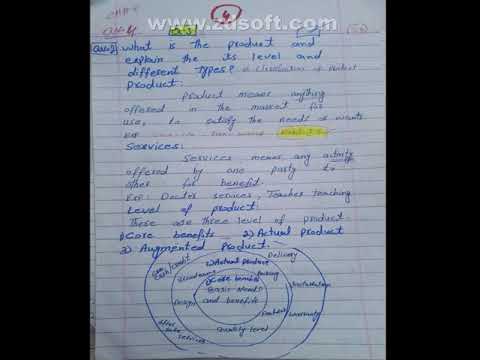 www.zdsoft.com
4
What is the product and
explain the its level and
different Types? & Classification of Product
Product:
Product means anything
offered in the market for
use, to satisfy the needs or wants
Exp
Services:
Services means any activity
offered by one party to
other for benefit.
Exp: Doctor services, Teacher teaching
Level of product:
There are three level of product
1) Core benefits 2) Actual product
3) Augmented Product.
Delivery
Cash/credit
2) Actual product
1) Core benefits
Basic Needs
and benefits
Design
Quality level
Installation
warranty
After
Sale
Services